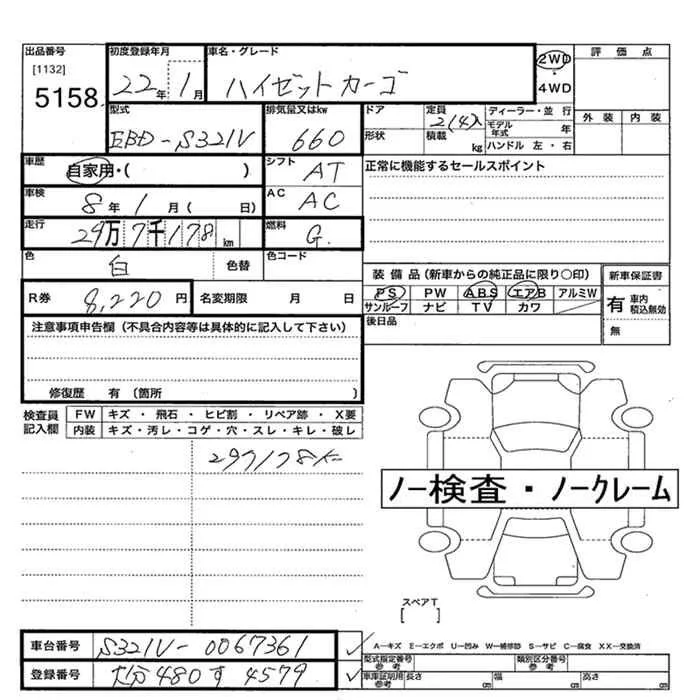 出品番号
[1132]
5158
初度登録年月
22年 1月
車名・グレード
ハイゼットカーゴ
2WD
・
4WD
評価点
外装 内装
型式
EBD-S321V
排気量又はkw
660
ドア
形状
定員
2(4)人
積載 kg
ディーラー・並行
モデル年式 年
ハンドル 左・右
車歴
自家用・( )
シフト
AT
正常に機能するセールスポイント
車検
8年 1月( 日)
AC
AC
走行
29万7千178km
燃料
G
色
白
色替
色コード
R券
8,220円
名変期限 月 日
装備品(新車からの純正品に限り○印)
PS PW ABS エアB アルミW
サンルーフ ナビ TV カワ
後日品
新車保証書
有 車内積込無効
無
注意事項申告欄(不具合内容等は具体的に記入して下さい)
修復歴 有(箇所 )
検査員記入欄
FW キズ・飛石・ヒビ割・リペア跡・X要
内装 キズ・汚レ・コゲ・穴・スレ・キレ・破レ
297178K
ノー検査・ノークレーム
スペアT
[ ]
車台番号
S321V-0067361
登録番号
大分480す4579
A―キズ E―エクボ U―凹み W―補修跡 S―サビ C―腐食 XX―交換済
型式指定番号
参考
類別区分番号
参考
車庫証明用
参考
長さ cm
幅 cm
高さ cm